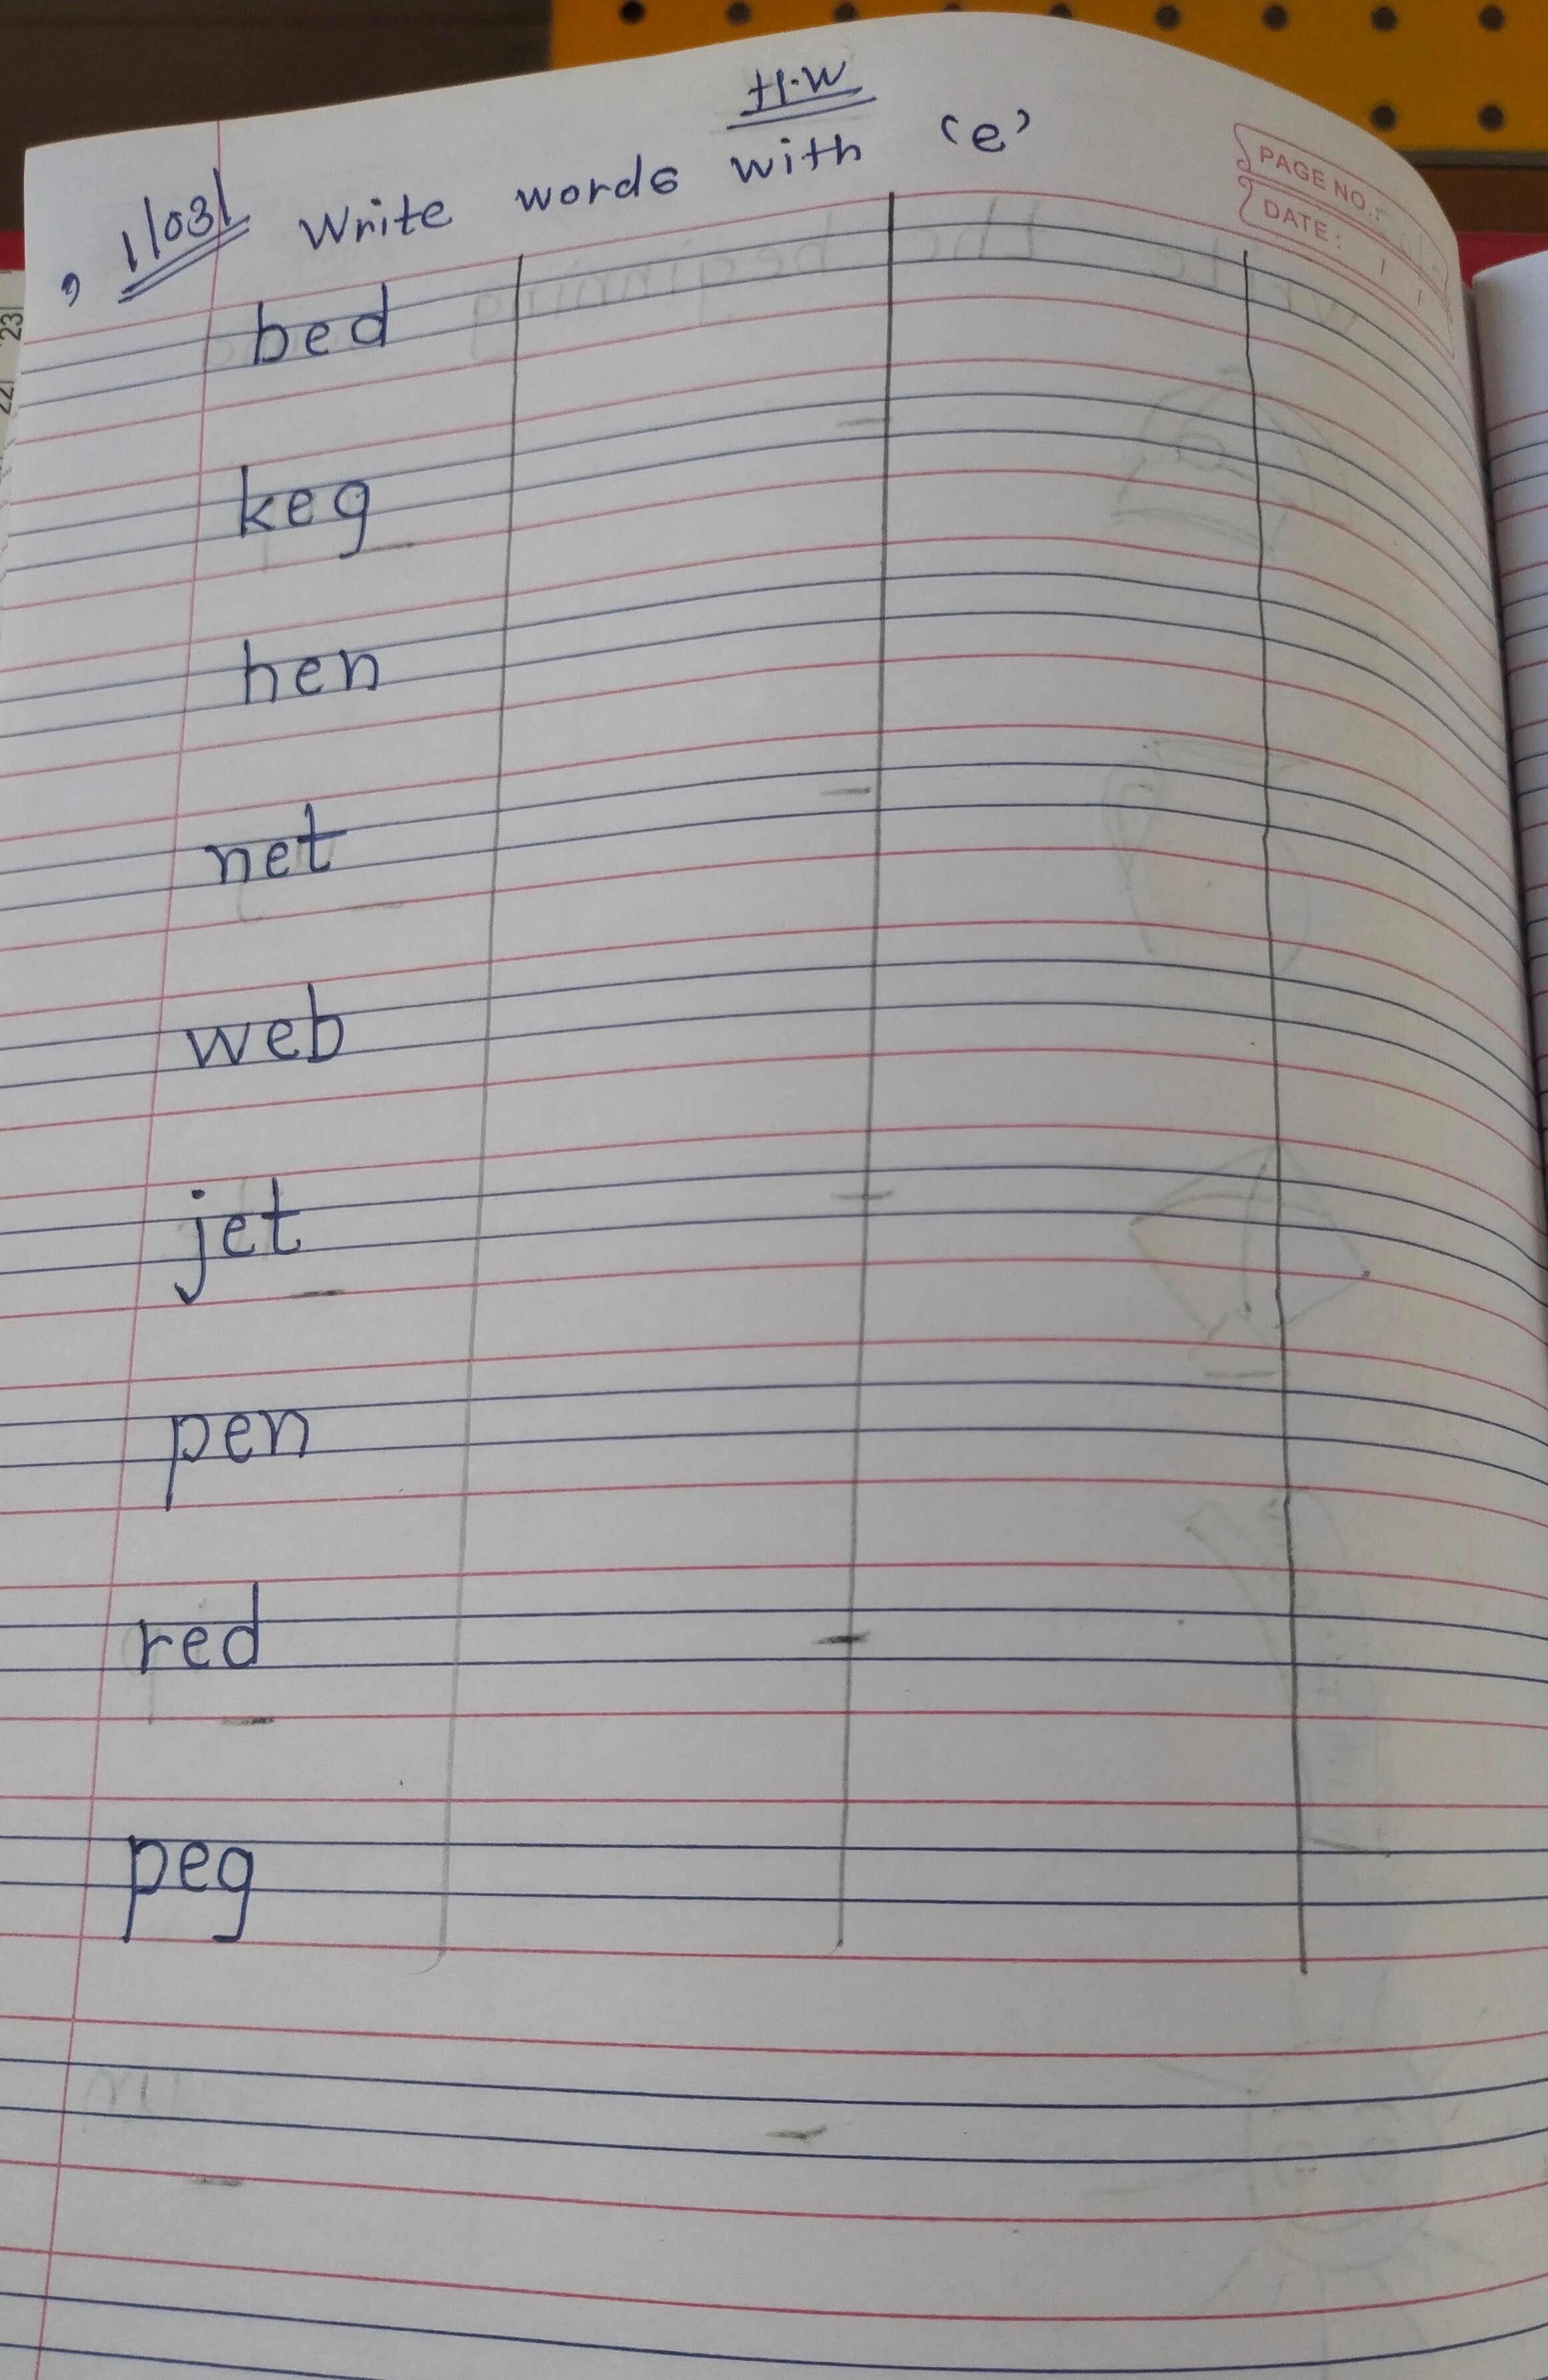 H.W
1/03/ Write words with 'e'
PAGE NO.:
DATE: / /
bed
keg
hen
net
web
jet
pen
red
peg
23
22